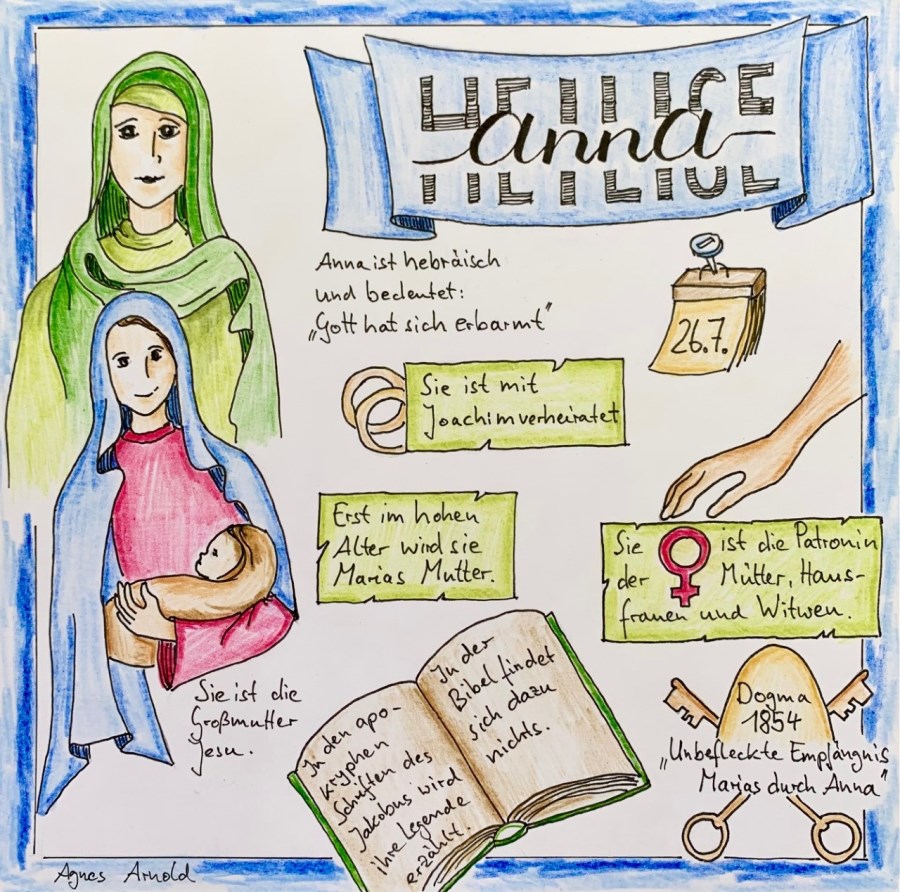 HEILIGE
anna
Anna ist hebräisch
und bedeutet:
„Gott hat sich erbarmt"
26.7.
Sie ist mit
Joachim verheiratet
Erst im hohen
Alter wird sie
Marias Mutter.
Sie ist die Patronin
der Mütter, Haus-
frauen und Witwen.
Sie ist die
Großmutter
Jesu.
In den apo-
kryphen
Schriften des
Jakobus wird
ihre Legende
erzählt.
In der
Bibel findet
sich dazu
nichts.
Dogma
1854
„Unbefleckte Empfängnis
Marias durch Anna"
Agnes Arnold